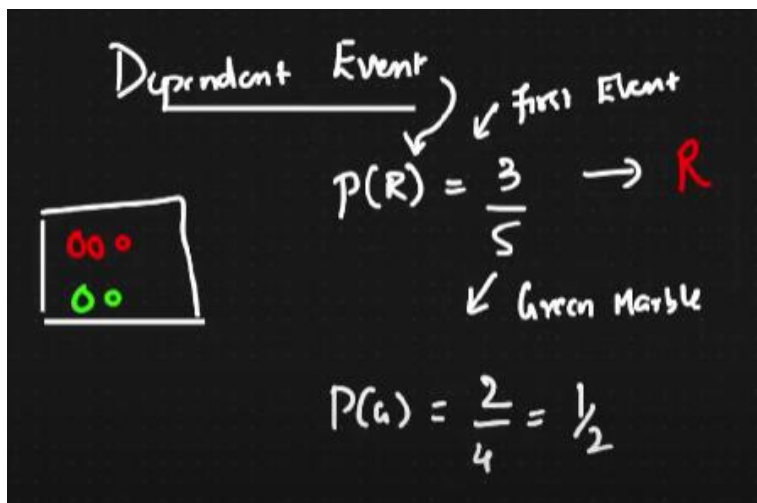 Dependent Event
First Event
P(R) = 3/5 → R
Green Marble
P(G) = 2/4 = 1/2